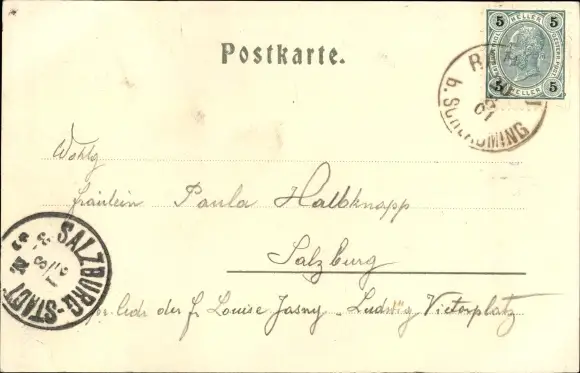 Postkarte.
5 HELLER 5
5 HELLER 5
b. SCHLADMING
01
Wohlg
Fräulein Paula Halbknapp
Salzburg
per Adr. der f Louise Jasny „Ludwig Victorplatz
SALZBURG-STADT